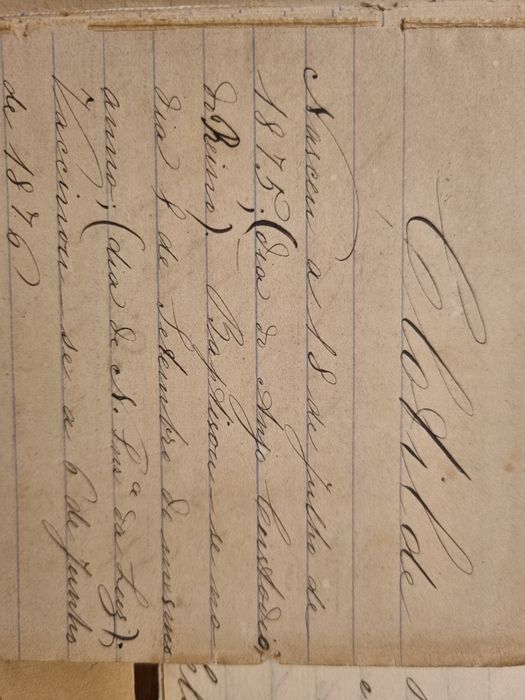 Clotilde
Nasceu a 18 de Julho de
1875; (dia do Anjo Custodio
do Reino). Baptisou-se no
dia 8 de Setembro do mesmo
anno; (dia de N. Snrª da Luz);
Vaccinou-se a 6 de Junho
de 1876